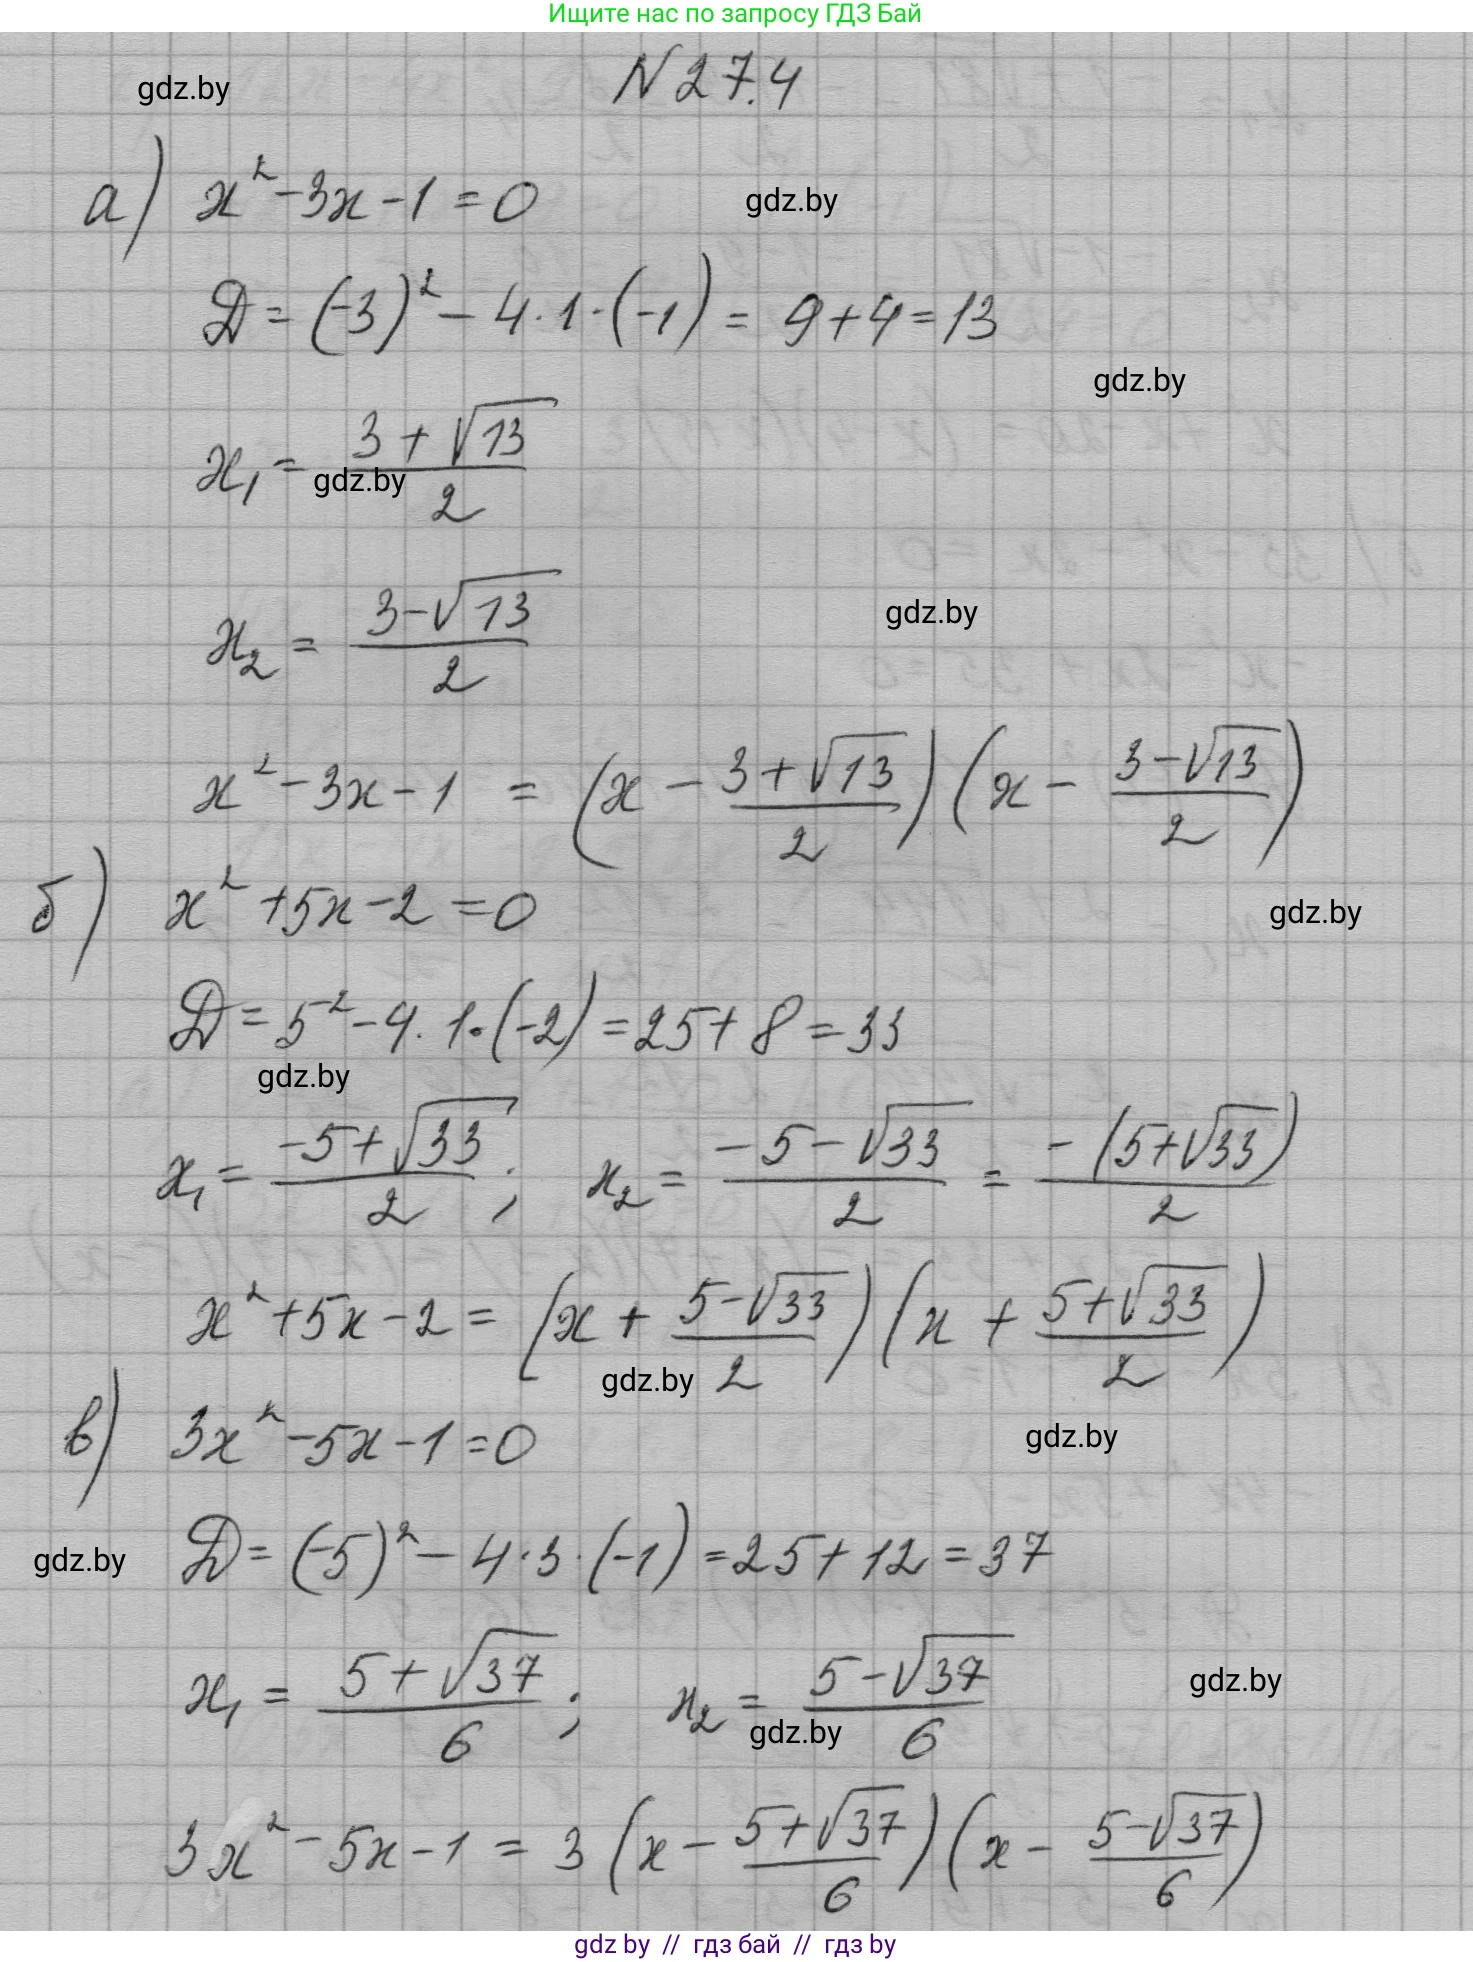 Ищите нас по запросу ГДЗ Бай
N 27.4
gdz.by
а) x² - 3x - 1 = 0
gdz.by
D = (-3)² - 4 · 1 · (-1) = 9 + 4 = 13
gdz.by
x₁ = (3 + √13)/2
gdz.by
x₂ = (3 - √13)/2
gdz.by
x² - 3x - 1 = (x - (3 + √13)/2) (x - (3 - √13)/2)
б) x² + 5x - 2 = 0
gdz.by
D = 5² - 4 · 1 · (-2) = 25 + 8 = 33
gdz.by
x₁ = (-5 + √33)/2 ; x₂ = (-5 - √33)/2 = (-(5 + √33))/2
x² + 5x - 2 = (x + (5 - √33)/2) (x + (5 + √33)/2)
gdz.by
в) 3x² - 5x - 1 = 0
gdz.by
D = (-5)² - 4 · 3 · (-1) = 25 + 12 = 37
gdz.by
x₁ = (5 + √37)/6 ; x₂ = (5 - √37)/6
gdz.by
gdz.by
3x² - 5x - 1 = 3 (x - (5 + √37)/6) (x - (5 - √37)/6)
gdz by // гдз бай // гдз by